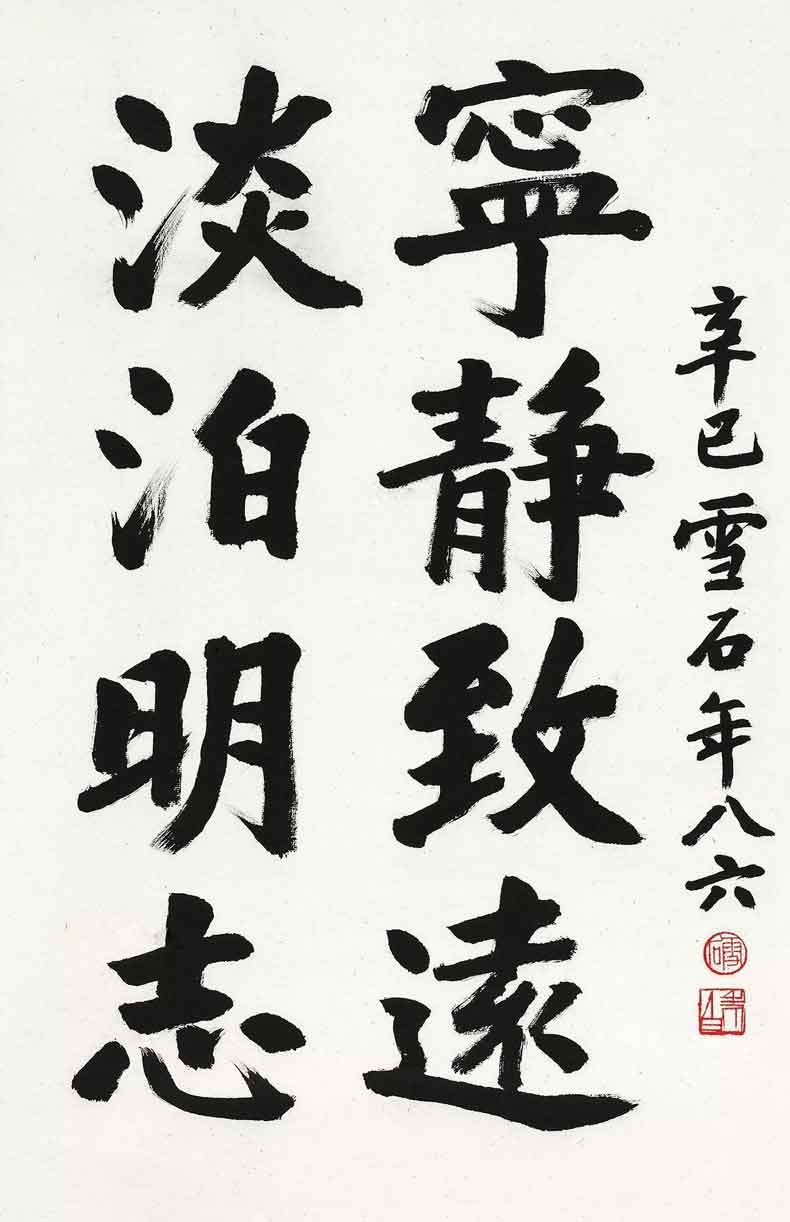 淡泊明志
寧靜致遠
辛巳雪石年八六
雪石